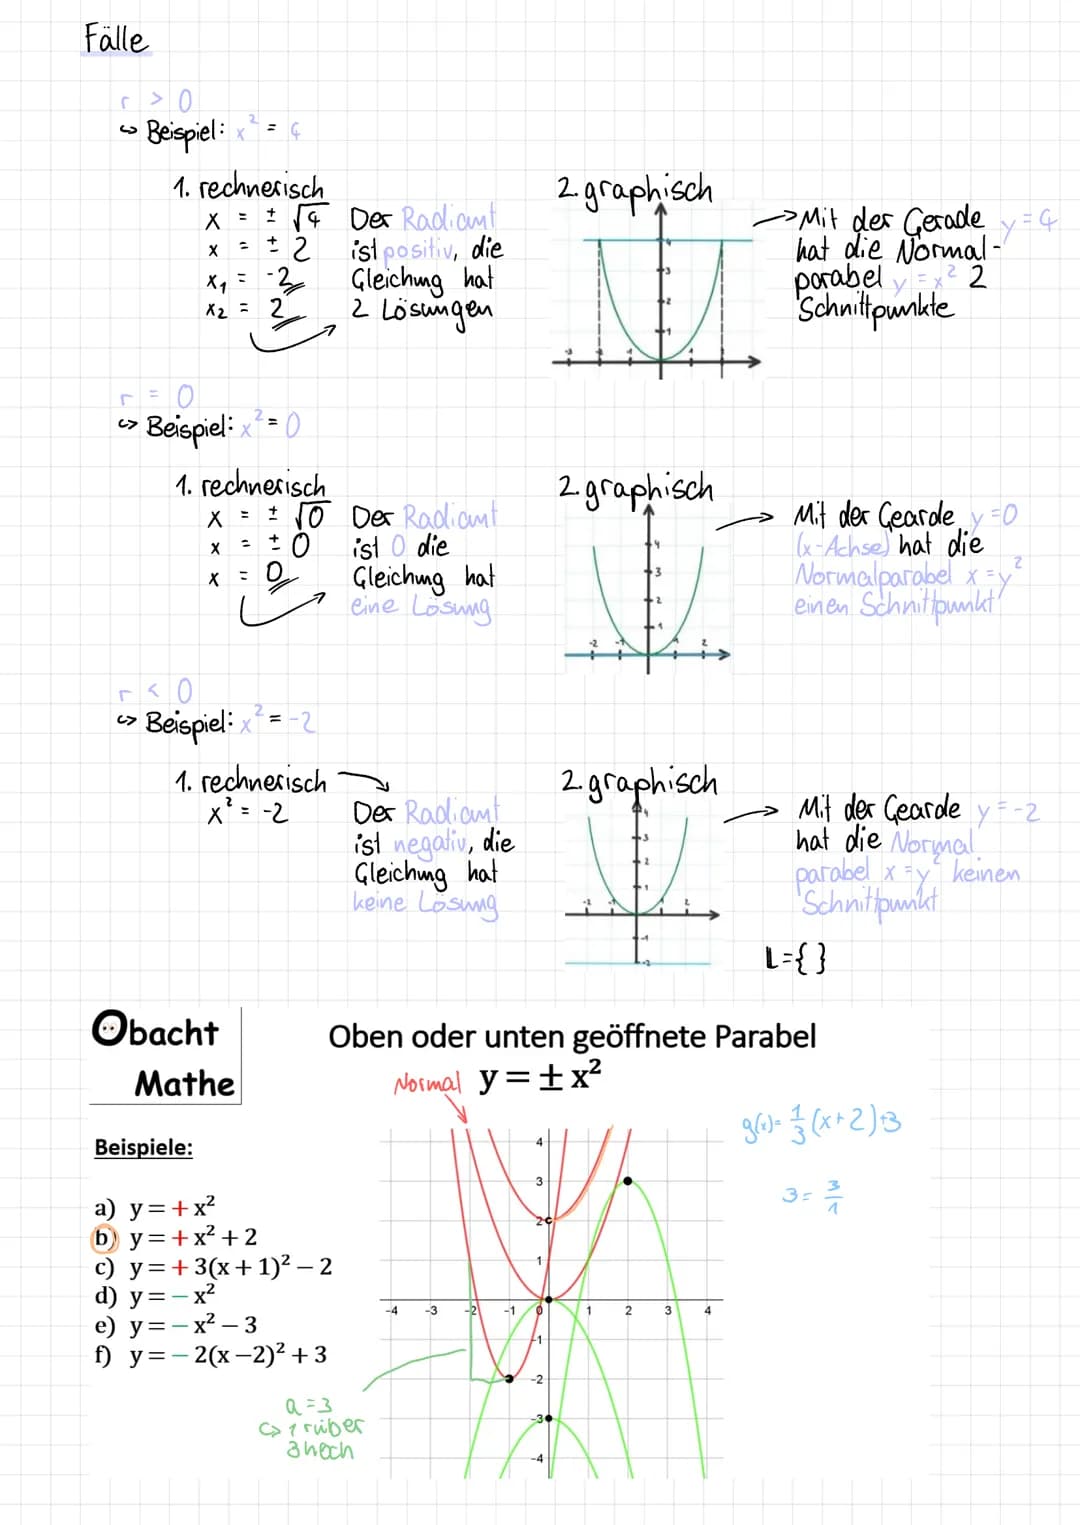 Fälle
r > 0
↪ Beispiel: x² = 4
1. rechnerisch
x = ± √4
x = ± 2
x₁ = -2
x₂ = 2
Der Radiant
ist positiv, die
Gleichung hat
2 Lösungen
2. graphisch
4
3
2
1
-3
-1
1
→ Mit der Gerade y = 4
hat die Normal-
parabel y = x² 2
Schnittpunkte
r = 0
↪ Beispiel: x² = 0
1. rechnerisch
x = ± √0
x = ± 0
x = 0
Der Radiant
ist 0 die
Gleichung hat
eine Lösung
2. graphisch
4
3
2
1
-2 -1 1 2
→ Mit der Gearde y = 0
(x-Achse) hat die
Normalparabel x = y²
einen Schnittpunkt
r < 0
↪ Beispiel: x² = -2
1. rechnerisch
x² = -2
Der Radiant
ist negativ, die
Gleichung hat
keine Lösung
2. graphisch
4
3
2
1
-1
-2
→ Mit der Gearde y = -2
hat die Normal
parabel x = y² keinen
Schnittpunkt
L = { }
Obacht
Mathe
Oben oder unten geöffnete Parabel
Normal y = ± x²
g(x) = 1/3 (x+2)+3
3 = 3/1
Beispiele:
a) y = + x²
b) y = + x² + 2
c) y = + 3(x + 1)² – 2
d) y = – x²
e) y = – x² – 3
f) y = – 2(x – 2)² + 3
4
3
2
1
-4 -3 -2 -1 0 1 2 3 4
-1
-2
-3
-4
a = 3
↪ 1 rüber
3 hoch